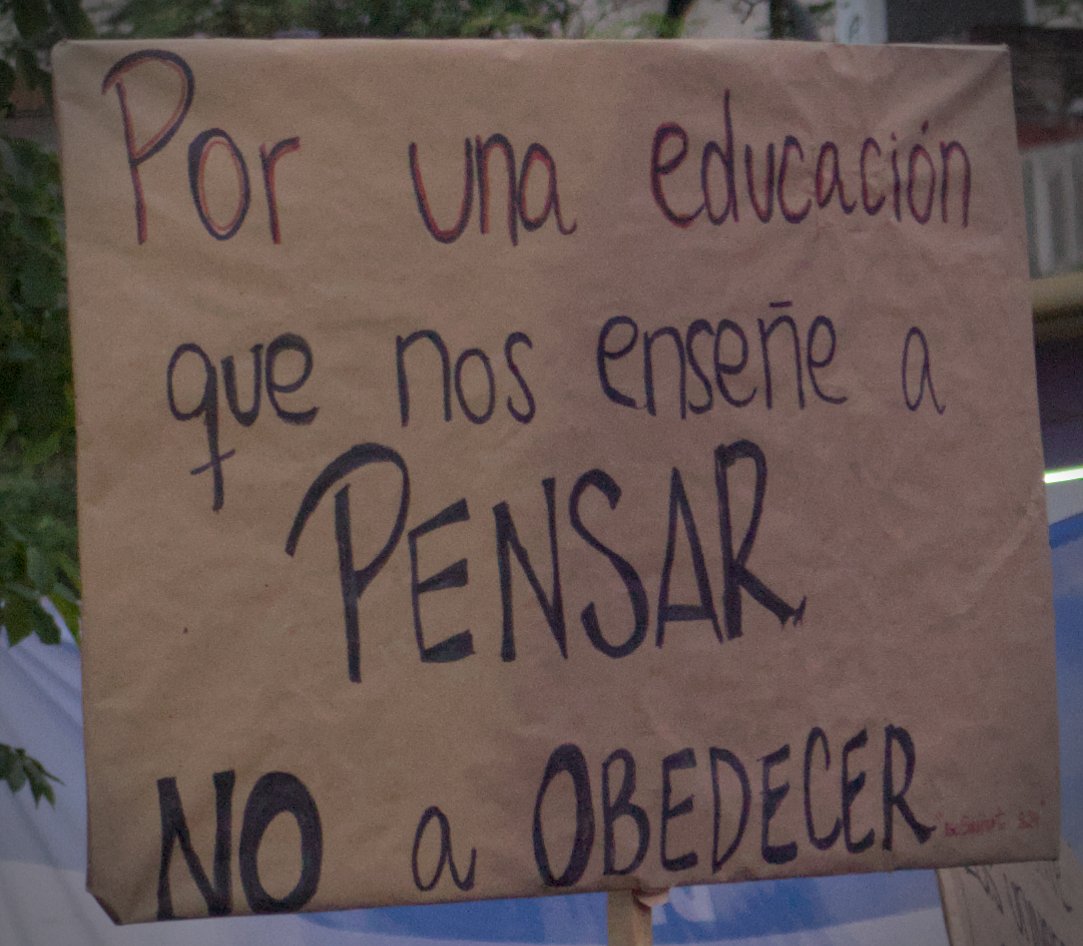 Por una educación
que nos enseñe a
PENSAR
NO a OBEDECER